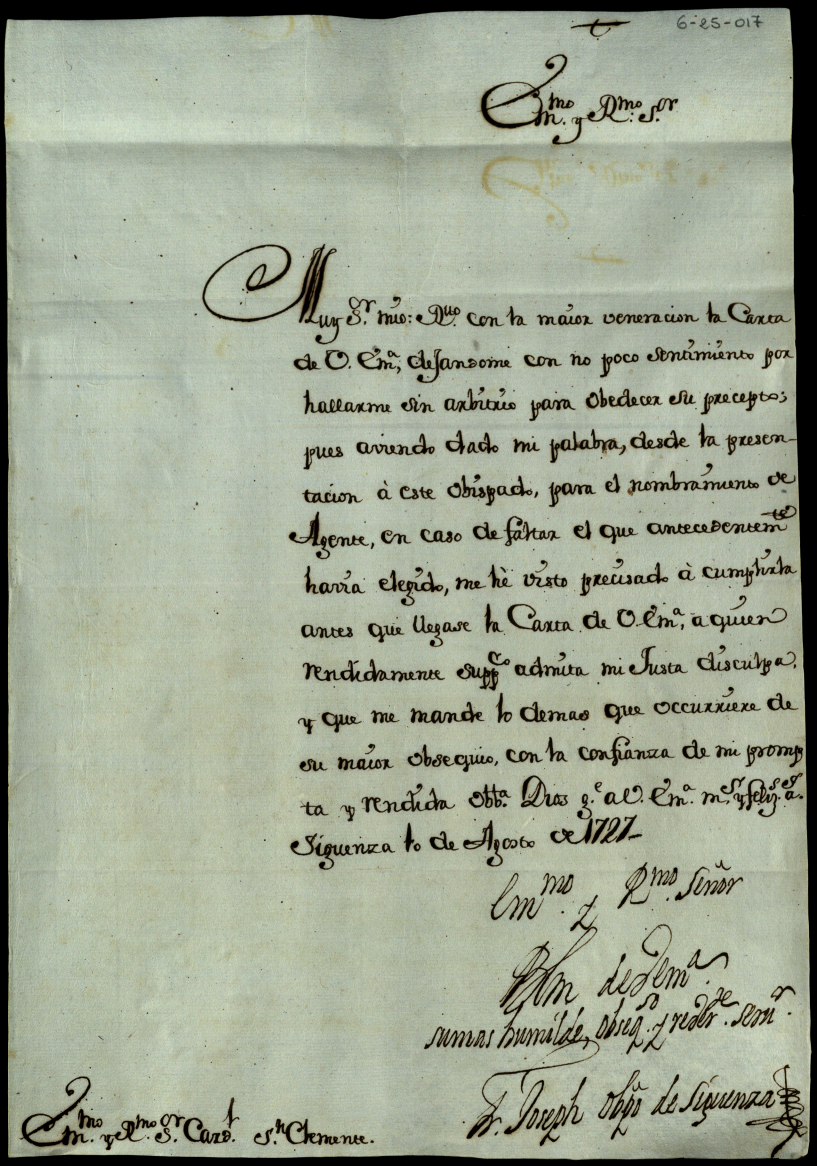 6-25-017
Em.mo y R.mo S.or
Muy S.r mio: R.uo con la maior veneracion la Carta
de V. Em.a, dejandome con no poco sentimiento por
hallarme sin arbitrio para obedecer su precepto;
pues aviendo dado mi palabra, desde la presen-
tacion à este obispado, para el nombramiento de
Agente, en caso de faltar el que antecedentem.te
havia elegido, me hè visto precisado à cumplirla
antes que llegase la Carta de V. Em.a, a quien
rendidamente supp.co admita mi Justa disculpa,
y que me mande lo demas que occurriere de
su maior obsequio, con la confianza de mi promp
ta y rendida obb.a Dios g.e a V. Em.a m.s y feliz.s a.s
Siguenza 10 de Agosto de 1727
Em.mo y R.mo Señor
BLM de V Em.a
su mas humilde, obseq.so y rever.te serv.r
Fr. Joseph Obpo de Siguenza
Em.mo y R.mo S.or Card.l S.n Clemente.